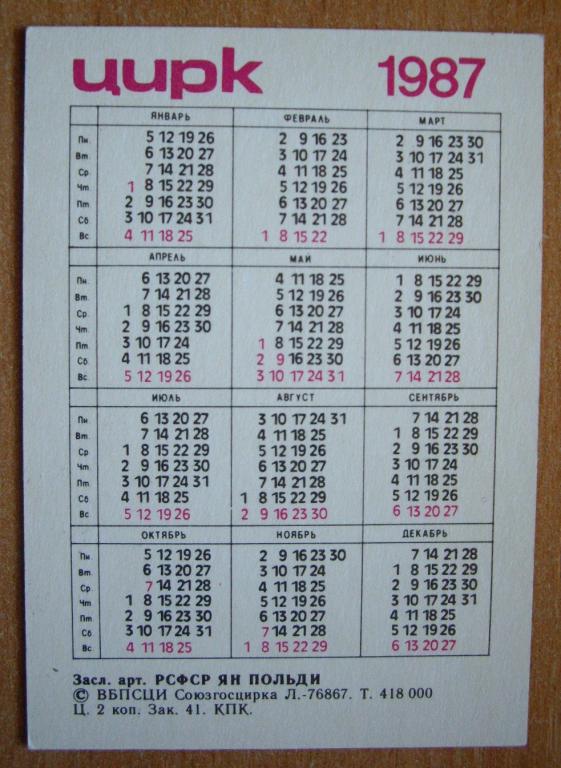 цирк 1987
ЯНВАРЬ ФЕВРАЛЬ МАРТ
Пн. 5 12 19 26 2 9 16 23 2 9 16 23 30
Вт. 6 13 20 27 3 10 17 24 3 10 17 24 31
Ср. 7 14 21 28 4 11 18 25 4 11 18 25
Чт. 1 8 15 22 29 5 12 19 26 5 12 19 26
Пт. 2 9 16 23 30 6 13 20 27 6 13 20 27
Сб. 3 10 17 24 31 7 14 21 28 7 14 21 28
Вс. 4 11 18 25 1 8 15 22 1 8 15 22 29
АПРЕЛЬ МАЙ ИЮНЬ
Пн. 6 13 20 27 4 11 18 25 1 8 15 22 29
Вт. 7 14 21 28 5 12 19 26 2 9 16 23 30
Ср. 1 8 15 22 29 6 13 20 27 3 10 17 24
Чт. 2 9 16 23 30 7 14 21 28 4 11 18 25
Пт. 3 10 17 24 1 8 15 22 29 5 12 19 26
Сб. 4 11 18 25 2 9 16 23 30 6 13 20 27
Вс. 5 12 19 26 3 10 17 24 31 7 14 21 28
ИЮЛЬ АВГУСТ СЕНТЯБРЬ
Пн. 6 13 20 27 3 10 17 24 31 7 14 21 28
Вт. 7 14 21 28 4 11 18 25 1 8 15 22 29
Ср. 1 8 15 22 29 5 12 19 26 2 9 16 23 30
Чт. 2 9 16 23 30 6 13 20 27 3 10 17 24
Пт. 3 10 17 24 31 7 14 21 28 4 11 18 25
Сб. 4 11 18 25 1 8 15 22 29 5 12 19 26
Вс. 5 12 19 26 2 9 16 23 30 6 13 20 27
ОКТЯБРЬ НОЯБРЬ ДЕКАБРЬ
Пн. 5 12 19 26 2 9 16 23 30 7 14 21 28
Вт. 6 13 20 27 3 10 17 24 1 8 15 22 29
Ср. 7 14 21 28 4 11 18 25 2 9 16 23 30
Чт. 1 8 15 22 29 5 12 19 26 3 10 17 24 31
Пт. 2 9 16 23 30 6 13 20 27 4 11 18 25
Сб. 3 10 17 24 31 7 14 21 28 5 12 19 26
Вс. 4 11 18 25 1 8 15 22 29 6 13 20 27
Засл. арт. РСФСР ЯН ПОЛЬДИ
© ВБПСЦИ Союзгосцирка Л.-76867. Т. 418 000
Ц. 2 коп. Зак. 41. КПК.